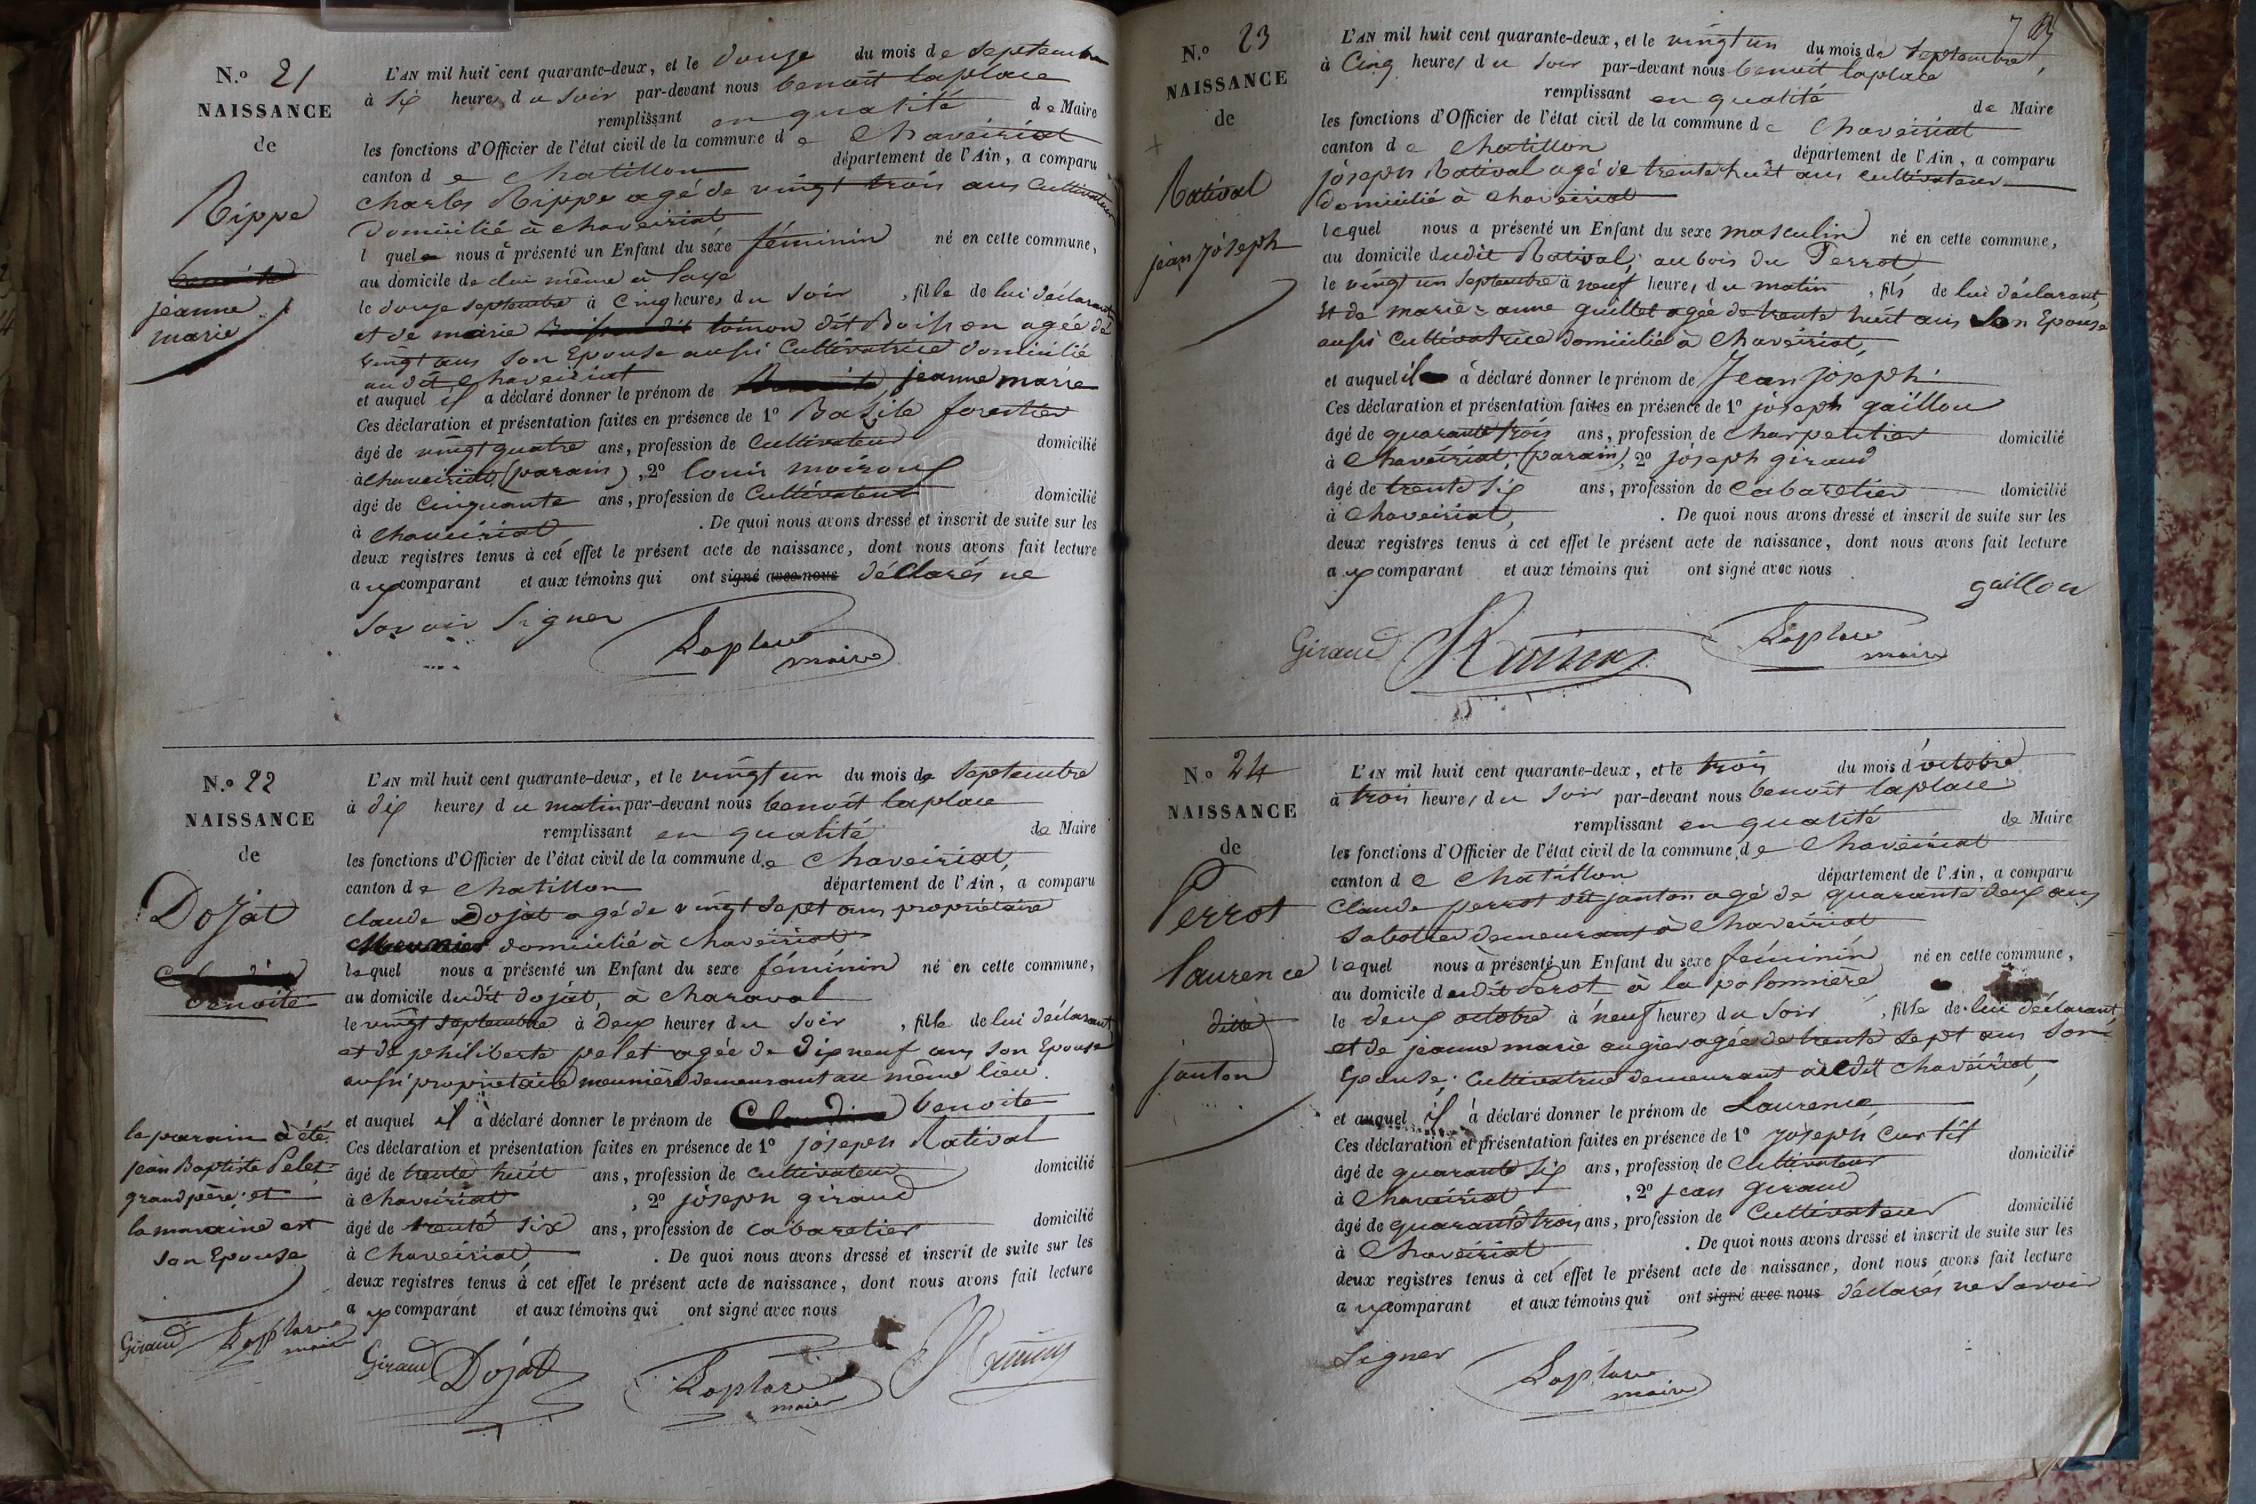 N.º 21
NAISSANCE
de
Rippe
jeanne
marie
L'AN mil huit cent quarante-deux, et le douze du mois de septembre
à six heures du soir par-devant nous benoît laplace
remplissant en qualité de Maire
les fonctions d'Officier de l'état civil de la commune de Chaveiriat
canton de Chatillon département de l'Ain, a comparu
Charles Rippe agé de vingt trois ans Cultivateur
domicilié à Chaveiriat
lequel nous a présenté un Enfant du sexe féminin né en cette commune,
au domicile de lui même à laye
le douze septembre à Cinq heures du soir, fille de lui déclarant
et de marie toinon dit Boisson agée de
vingt ans son Epouse aussi Cultivatrice domicilié
audit Chaveiriat
et auquel il a déclaré donner le prénom de jeanne marie
Ces déclaration et présentation faites en présence de 1º Basile forestier
âgé de vingt quatre ans, profession de Cultivateur domicilié
à Chaveiriat (parain), 2º louis moiroux
âgé de Cinquante ans, profession de Cultivateur domicilié
à Chaveiriat. De quoi nous avons dressé et inscrit de suite sur les
deux registres tenus à cet effet le présent acte de naissance, dont nous avons fait lecture
aux comparant et aux témoins qui ont signé avec nous déclarés ne
savoir signer
Laplace
maire
N.º 22
NAISSANCE
de
Dojat
benoite
le parain à été
jean Baptiste Pelet
grand père et
la maraine est
son Epouse
Giraud Laplace
maire
L'AN mil huit cent quarante-deux, et le vingt un du mois de septembre
à dix heures du matin par-devant nous benoît laplace
remplissant en qualité de Maire
les fonctions d'Officier de l'état civil de la commune de Chaveiriat,
canton de Chatillon département de l'Ain, a comparu
claude Dojat agé de vingt sept ans propriétaire
Meunier domicilié à Chaveiriat
lequel nous a présenté un Enfant du sexe féminin né en cette commune,
au domicile dudit dojat, à Charaval
le vingt septembre à Deux heures du soir, fille de lui déclarant
et de philiberte pelet agée de dix neuf ans son Epouse
aussi propriétaire meunière demeurant au même lieu.
et auquel il à déclaré donner le prénom de Claudine benoite
Ces déclaration et présentation faites en présence de 1º joseph Rativat
âgé de trente huit ans, profession de Cultivateur domicilié
à Chaveiriat, 2º joseph giraud
âgé de trente six ans, profession de Cabaretier domicilié
à Chaveiriat,. De quoi nous avons dressé et inscrit de suite sur les
deux registres tenus à cet effet le présent acte de naissance, dont nous avons fait lecture
aux comparant et aux témoins qui ont signé avec nous
Giraud Dojat Laplace
maire
7
N.º 23
NAISSANCE
de
Rativat
jean joseph
L'AN mil huit cent quarante-deux, et le vingt un du mois de septembre,
à Cinq heures du soir par-devant nous benoît laplace
remplissant en qualité de Maire
les fonctions d'Officier de l'état civil de la commune de Chaveiriat
canton de Chatillon département de l'Ain, a comparu
joseph Rativat agé de trente huit ans cultivateur
domicilié à Chaveiriat
lequel nous a présenté un Enfant du sexe masculin né en cette commune,
au domicile dudit Rativat, au bois du Perrot
le vingt un septembre à neuf heures du matin, fils de lui déclarant,
Et de marie anne guillet agée de trente huit ans son Epouse
aussi Cultivatrice domicilié à Chaveiriat,
et auquel il à déclaré donner le prénom de Jean joseph
Ces déclaration et présentation faites en présence de 1º joseph gaillon
âgé de quarante trois ans, profession de charpentier domicilié
à Chaveiriat, (parain), 2º joseph giraud
âgé de trente six ans, profession de Cabaretier domicilié
à Chaveiriat,. De quoi nous avons dressé et inscrit de suite sur les
deux registres tenus à cet effet le présent acte de naissance, dont nous avons fait lecture
aux comparant et aux témoins qui ont signé avec nous
gaillon
Giraud Laplace
maire
N.º 24
NAISSANCE
de
Perrot
laurence
dite
janton
L'AN mil huit cent quarante-deux, et le trois du mois d'octobre
à trois heures du soir par-devant nous benoît laplace
remplissant en qualité de Maire
les fonctions d'Officier de l'état civil de la commune de Chaveiriat
canton de Chatillon département de l'Ain, a comparu
Claude perrot dit janton agé de quarante deux ans
sabotier demeurant à Chaveiriat
lequel nous à présenté un Enfant du sexe féminin né en cette commune,
au domicile dudit Perot à la polonnière
le deux octobre à neuf heures du soir, fille de lui déclarant,
et de jeanne marie augier agée de trente sept ans son
Epouse, Cultivatrice demeurant audit Chaveiriat,
et auquel il à déclaré donner le prénom de Laurence
Ces déclaration et présentation faites en présence de 1º joseph Curtil
âgé de quarante six ans, profession de Cultivateur domicilié
à Chaveiriat, 2º jean geraud
âgé de quarante trois ans, profession de Cultivateur domicilié
à Chaveiriat. De quoi nous avons dressé et inscrit de suite sur les
deux registres tenus à cet effet le présent acte de naissance, dont nous avons fait lecture
aux comparant et aux témoins qui ont signé avec nous déclarés ne savoir
signer
Laplace
maire